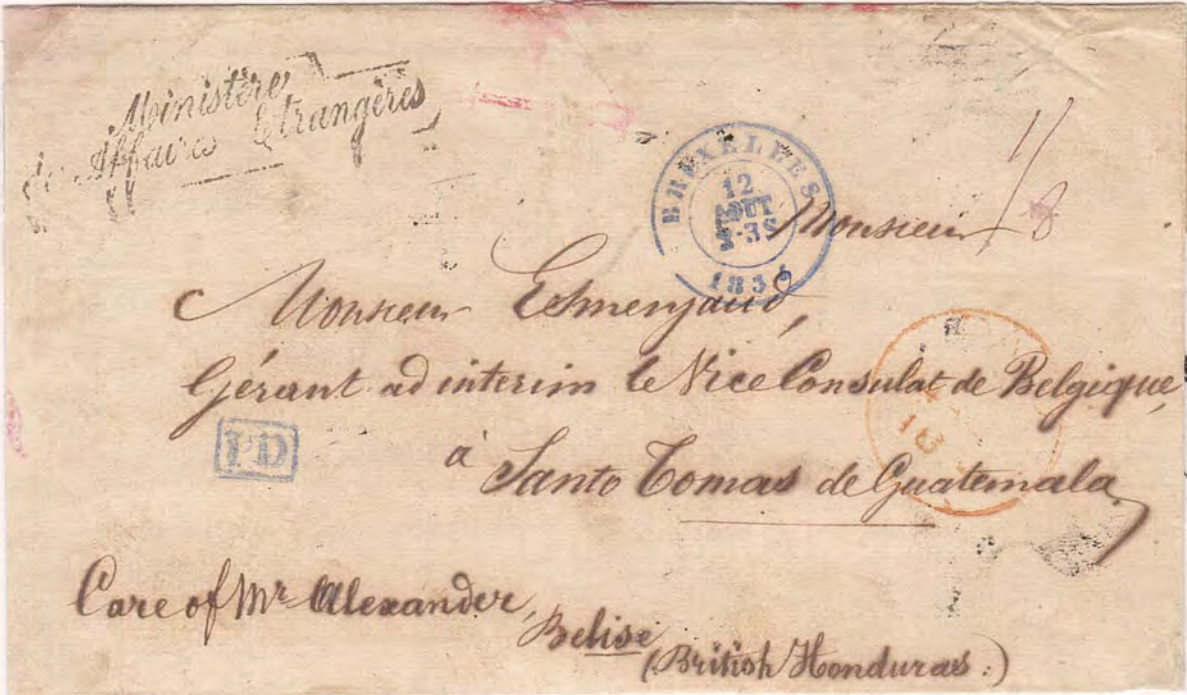 Ministère
des Affaires Etrangères
BRUXELLES
12
AOUT
1856
1/8
Monsieur
Monsieur Esmenjaud,
Gérant ad interim le Vice Consulat de Belgique,
PD
à Santo Tomas de Guatemala
Care of Mr Alexander,
Belise
(British Honduras.)